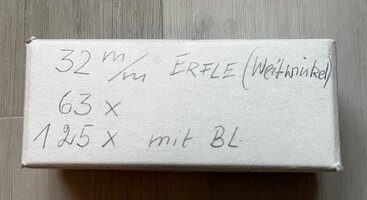 32 m/m ERFLE (Weitwinkel)
63 x
125 x mit BL.